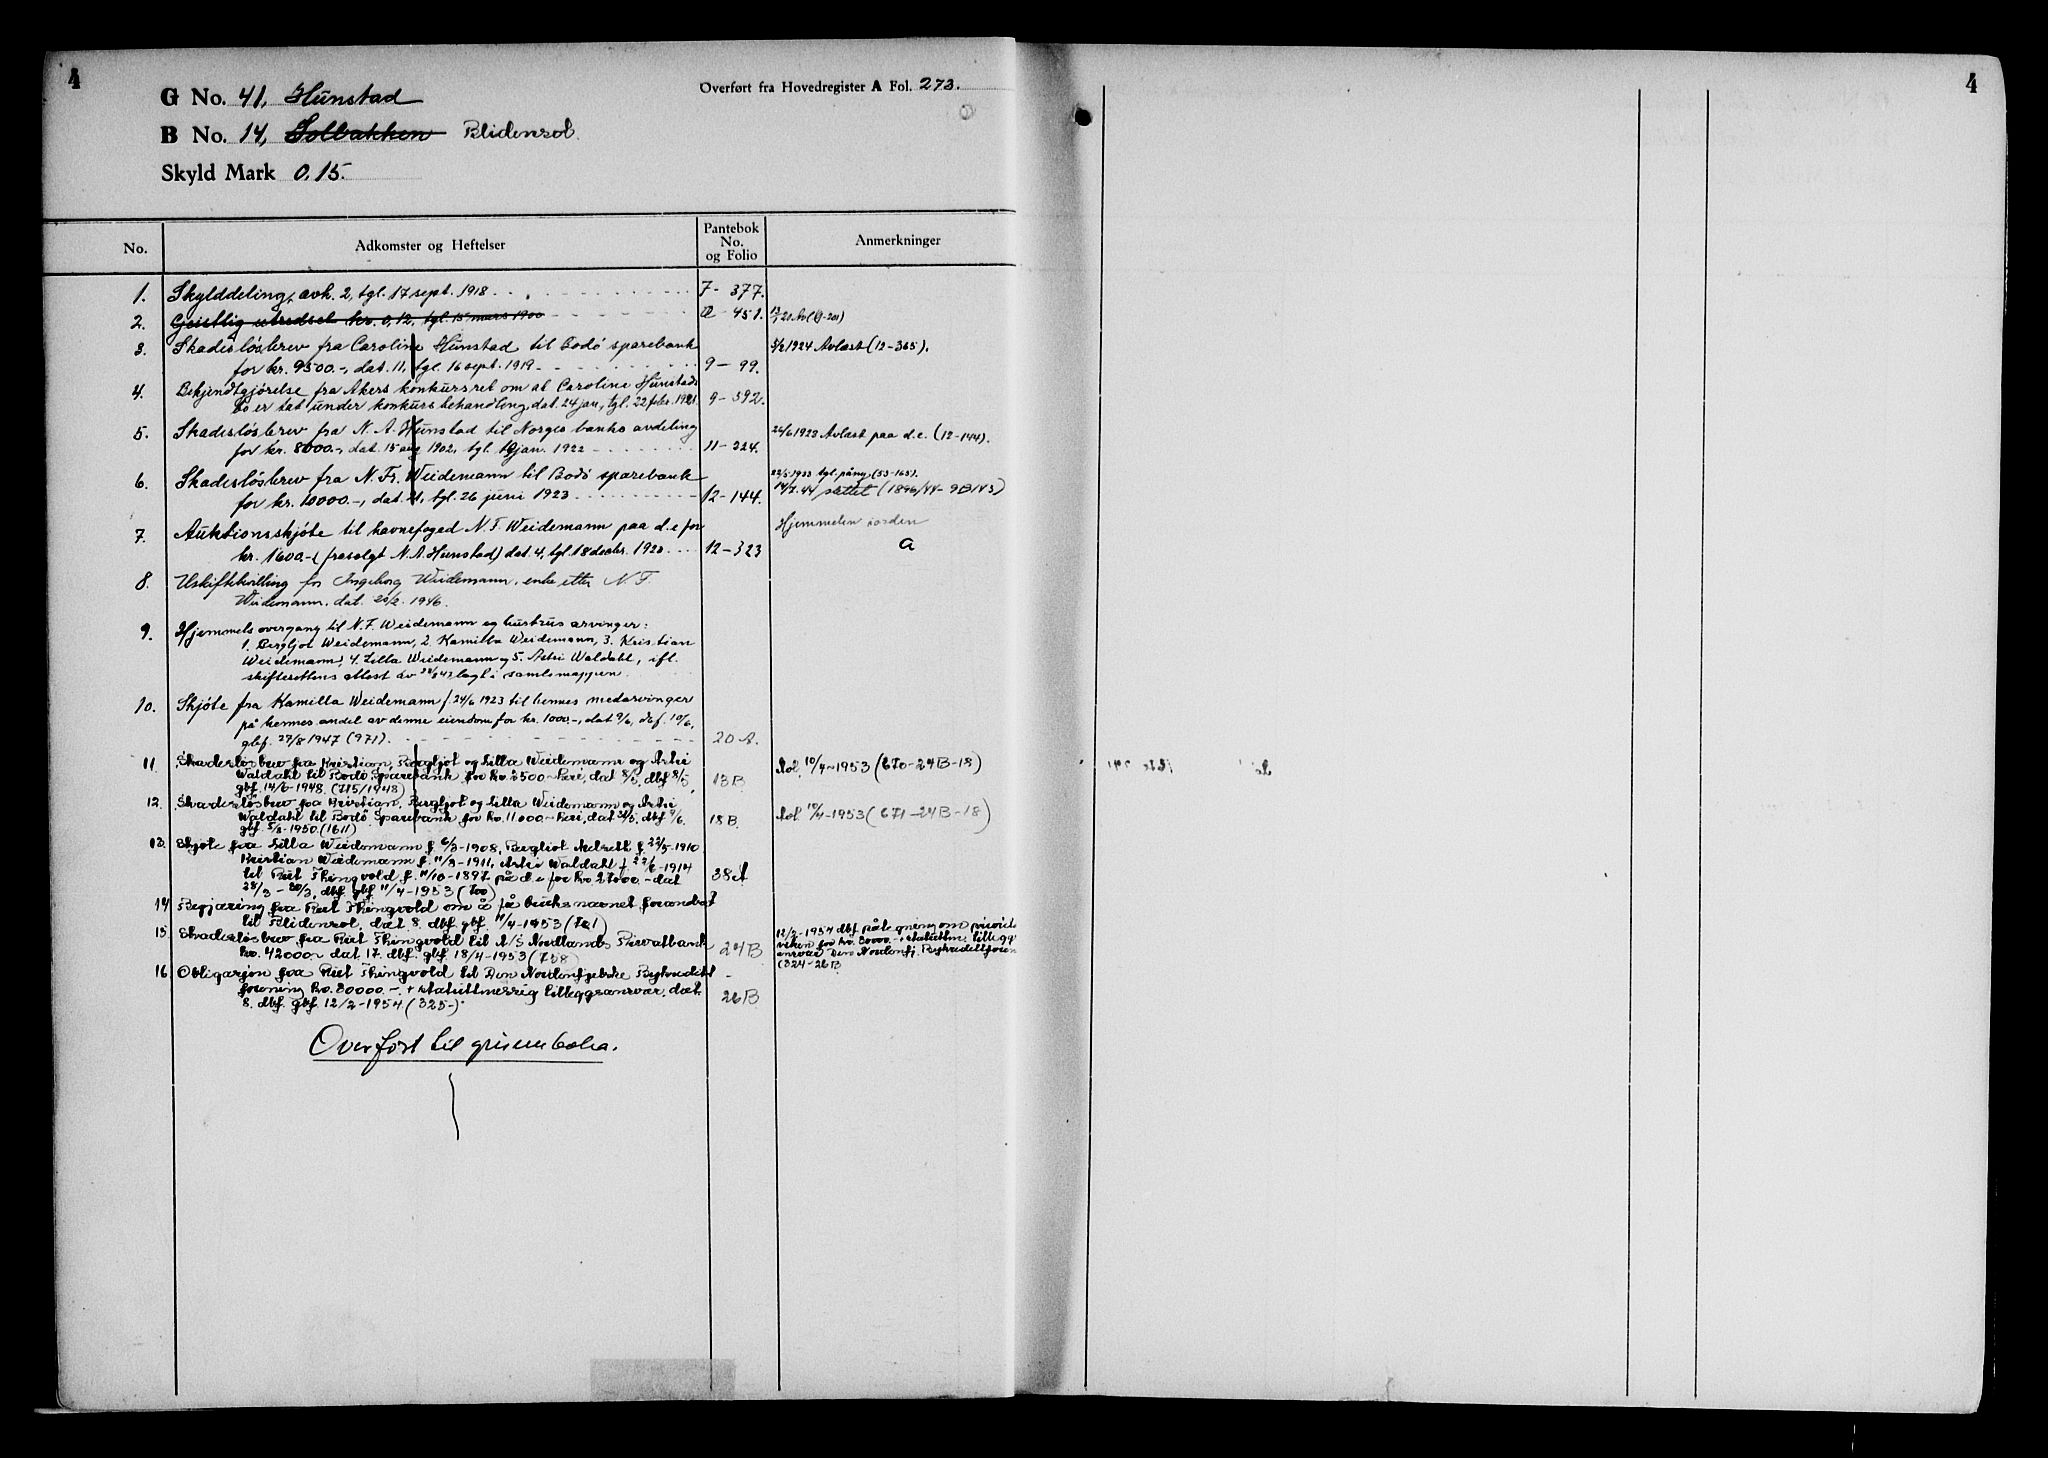 4
G No. 41, Hunstad
Overført fra Hovedregister A Fol. 273.
B No. 14, Solbakken Blidensol.
Skyld Mark 0,15.
No.
Adkomster og Heftelser
Pantebok
No.
og Folio
Anmerkninger
1. Skylddeling, avh. 2, tgl. 17 sept. 1918 7- 377.
2. Geistlig utredsel kr. 0,12, tgl. 15 mars 1900 - 451.
3. Skadesløsbrev fra Caroline Hunstad til Bodø sparebank 5/2 1924 Avlæst (12-365).
for kr. 9500.-, dat. 11, tgl. 16 sept. 1919 9- 99.
4. Bekjendtgjørelse fra Akers konkursret om at Caroline Hunstads
bo er tat under konkursbehandling, dat. 24 jan, tgl. 22 febr. 1921. 9- 592.
5. Skadesløsbrev fra N. A. Hunstad til Norges banks avdeling 26/6 1923 Avlæst paa d.e. (12-144).
for kr. 8000.-, dat. 15 aug 1902, tgl. jan. 1922 11- 324.
6. Skadesløsbrev fra N. Fr. Weidemann til Bodø sparebank 22/5-1933 tgl. påny, (53-165).
for kr. 10000.-, dat. 21, tgl. 26 juni 1923 12- 144. 14/7.44 slettet (1896/44- 9B145)
7. Auktionsskjøte til havnefoged N. F. Weidemann paa d.e for Hjemmelen i orden
kr. 1600.- (frasolgt N. A. Hunstad) dat. 4, tgl. 18 decbr. 1923 12-323 a
8. Uskiftebevilling for Ingeborg Weidemann, enke etter N. F.
Weidemann, dat. 20/2. 1946.
9. Hjemmelsovergang til N. F. Weidemann og hustrus arvinger:
1. Bergljot Weidemann, 2. Kamilla Weidemann, 3. Kristian
Weidemann, 4. Lilla Weidemann og 5. Astri Waldahl, ifl.
skifterettens attest av lagt i samlemappen.
10. Skjøte fra Kamilla Weidemann f. 24/6 1923 til hennes medarvinger
på hennes andel av denne eiendom for kr. 1000.-, dat 9/6, dbf. 10/6,
gbf. 27/8 1947 (971). 20 A.
11 Skadesløsbrev fra Kristian, Bergljot og Lilla Weidemann og Astri Avl. 10/4-1953 (670-24B-18)
Waldahl til Bodø Sparebank for kr. 3500.- , dat 8/5, dbf 8/5, 13 B
gbf. 14/6-1948. (715/1948)
12. Skadesløsbrev fra Kristian, Bergljot og Lilla Weidemann og Astri Avl 10/4-1953 (671-24B-18)
Waldahl til Bodø Sparebank for kr. 11000.- , dat 31/5, dbf 9/6. 18 B.
gbf. 5/8-1950. (1611)
13. Skjøte fra Lilla Weidemann f. 6/3-1908, Bergliot f. 22/5-1910
Kristian Weidemann f. 11/3-1911, Astri Waldahl f 22/6-1914
til Reet Thingvold f. 11/10-1897 på d.e for kr. 27000.- dat 38 A
28/3 - 30/3, dbf. gbf 11/4-1953 (700)
14 Begjæring fra Reet Thingvold om å få bruksnavnet forandret
til Blidensol, dat 8. dbf. gbf. 11/4-1953 (701)
15. Skadesløsbrev fra Reet Thingvold til A/S Nordlands Privatbank 24 B 12/2-1954 dbf påtegning om priorit
kr. 42000.- dat 17. dbf. gbf 18/4-1953 (758) viken for kr. 80000.- + statuttm. tillegg
ansvar Den Nordenfj. Bykredittforen
(324-26 B
16 Obligasjon fra Reet Thingvold til Den Nordenfjelske Bykreditt
forening kr. 80000.-. + statuttmessig tilleggsansvar, dat. 26 B
8. dbf. gbf 12/2-1954 (325-).
Overført til
4